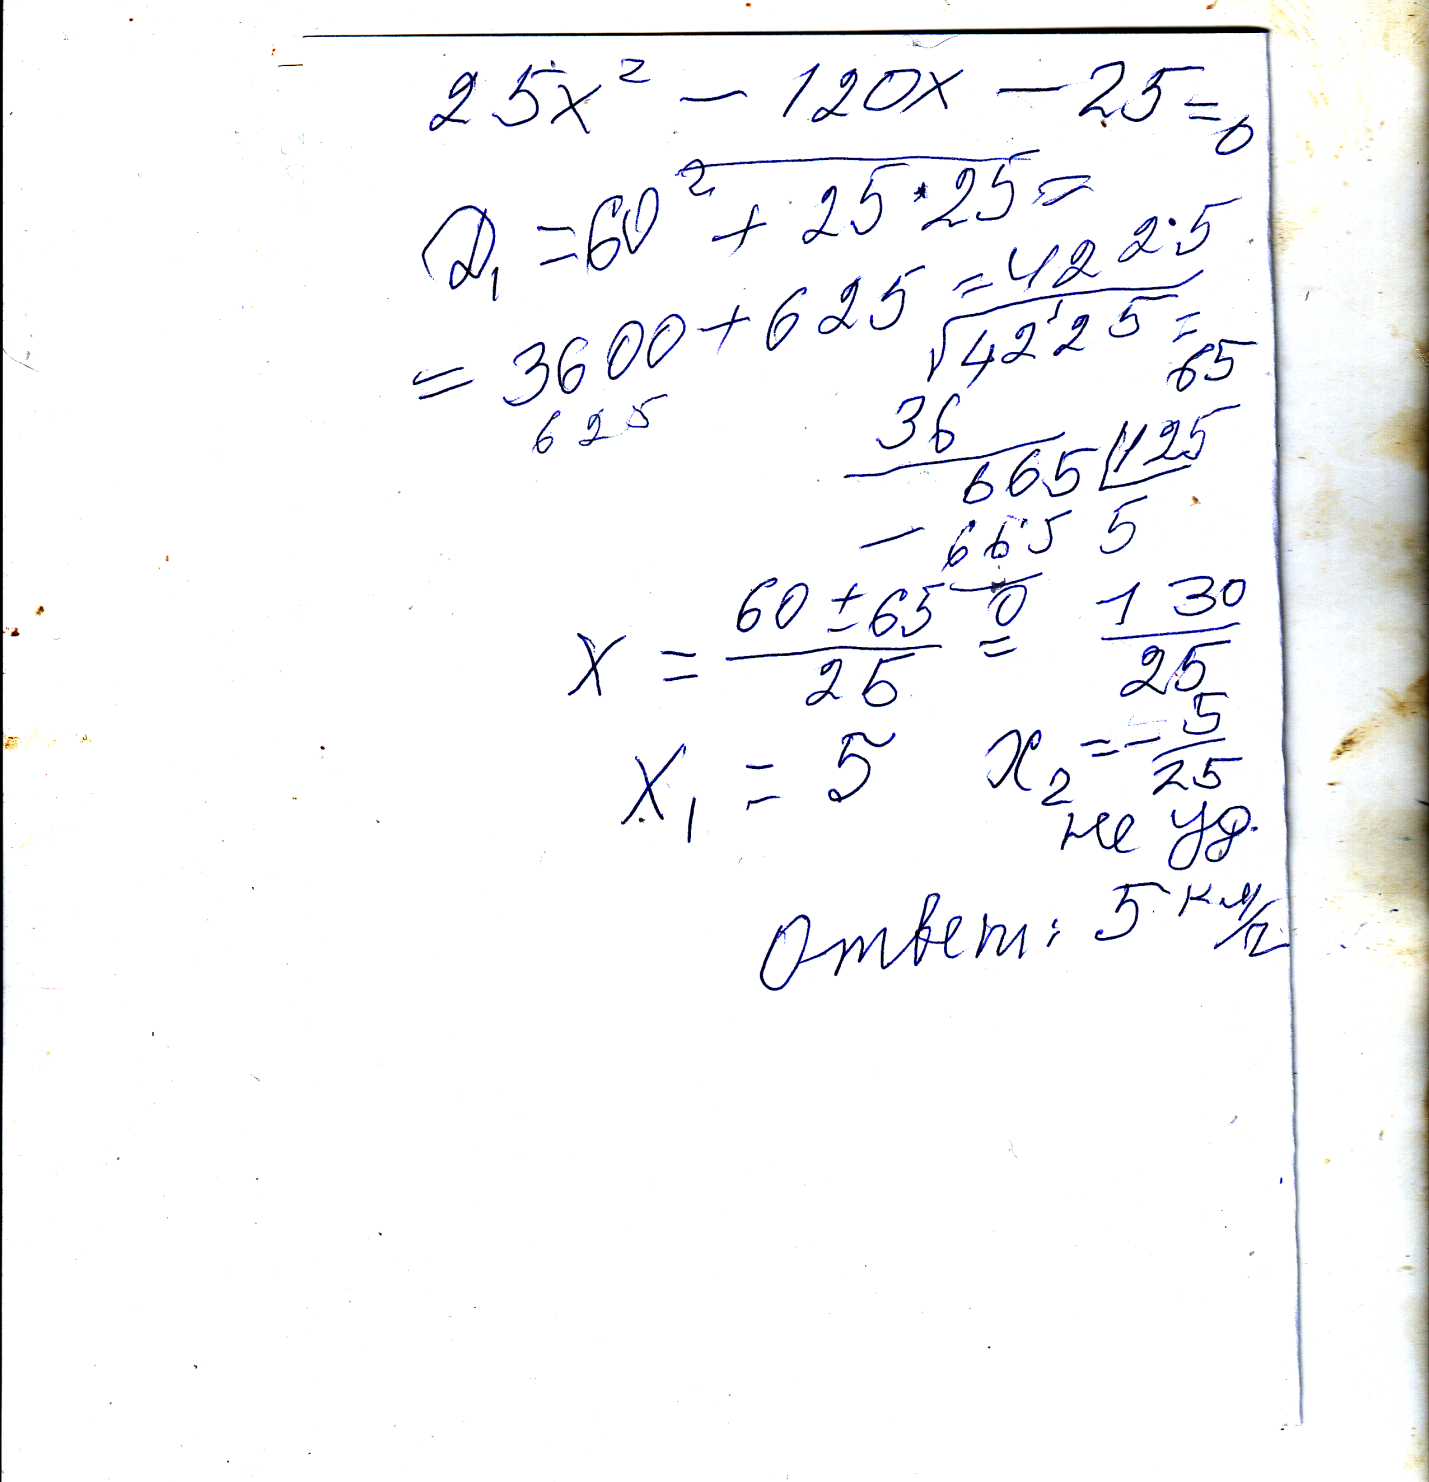 25x² − 120x − 25 = 0
D₁ = 60² + 25 · 25 =
= 3600 + 625 = 4225
625
√4225 = 65
36
665 125
− 665 5
0
x = 60 ± 65 / 25 = 130 / 25
x₁ = 5 x₂ = − 5 / 25
не уд.
Ответ: 5 км/ч